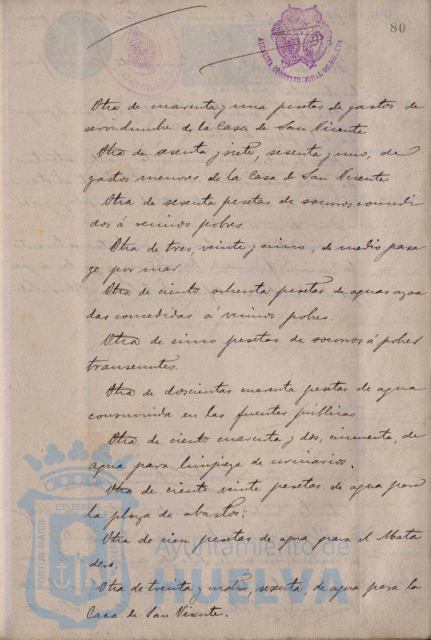 80
ALCALDIA CONSTITUCIONAL DE HUELVA
Otra de cuarenta y una pesetas de gastos de
servidumbre de la Casa de San Vicente
Otra de sesenta y siete, sesenta y uno, de
gastos menores de la Casa de San Vicente
Otra de sesenta pesetas de socorros concedi
dos á vecinos pobres.
Otra de tres, veinte y cinco, de medio pasa
ge por mar
Otra de ciento ochenta pesetas de aguas
das concedidas á vecinos pobres.
Otra de cinco pesetas de socorros á pobres
transeuntes.
Otra de doscientas cuarenta pesetas de agua
consumida en las fuentes públicas
Otra de ciento cuarenta y dos, cincuenta, de
agua para limpieza de urinarios.
Otra de ciento veinte pesetas de agua para
la plaza de abastos.
Otra de cien pesetas de agua para el Mata
dero.
Otra de treinta y cuatro, sesenta de agua para la
Casa de San Vicente.
PORTUS MARIS ET TERRAE
Ayuntamiento de
HUELVA